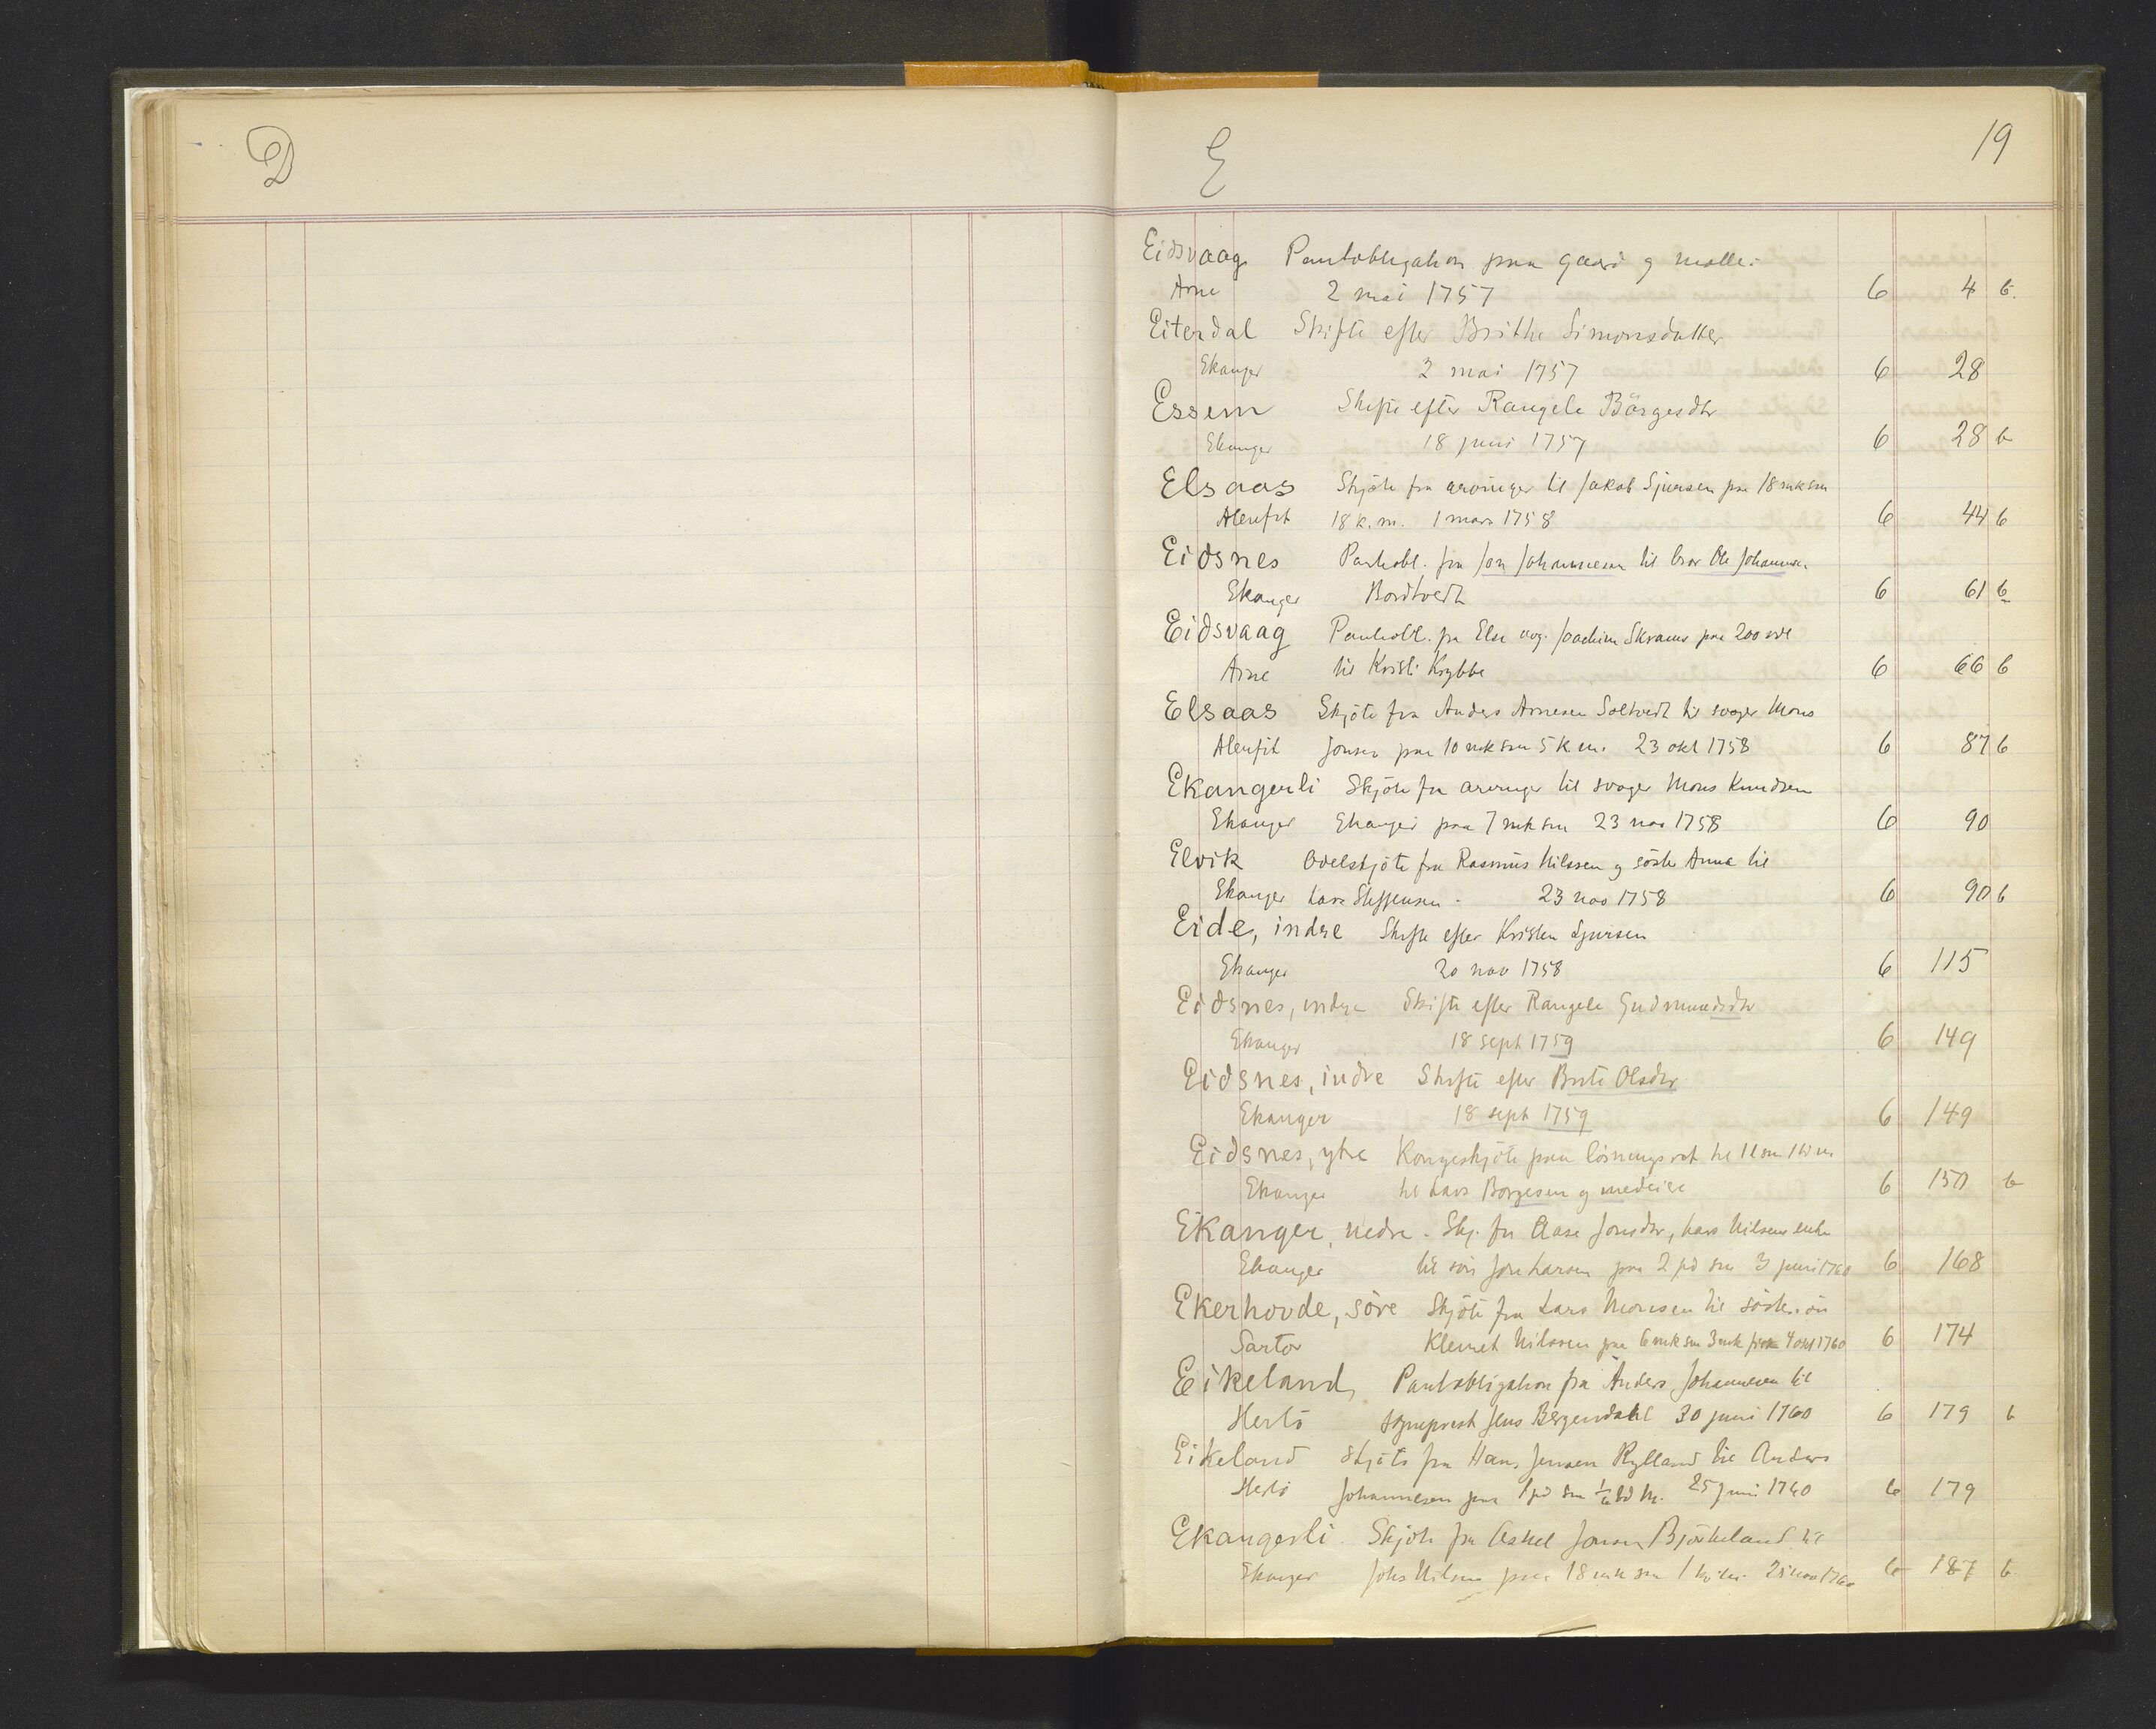 D
E
19
Eidsvaag Pantobligation paa gaard og mølle.
Arne 2 mai 1757 6 4 b.
Eiterdal Skifte efter Brithe Simonsdatter
Ekanger 2 mai 1757 6 28
Essem Skifte efter Rangele Börgesdtr
Ekanger 18 juni 1757 6 28 b
Elsaas Skjöte fra arvinger til Jakob Sjursen paa 18 mk sm
Alenfit 18 k. m. 1 mars 1758 6 44 b
Eidsnes Pantobl. fra Jon Johannesen til bror Ole Johannesen
Ekanger Bordtvedt 6 61 b
Eidsvaag Pantobl. fra Else avg. Joachim Skrams paa 200 rdl
Arne til Kristi Krybbe 6 66 b
Elsaas Skjöte fra Anders Arnesen Soltvedt til svoger Mons
Alenfit Jonsen paa 10 mk sm 5 k m. 23 okt 1758 6 87 b
Ekangerli Skjöte fra arvinger til svoger Mons Knudsen
Ekanger Ekanger paa 7 mk sm 23 nov 1758 6 90
Elvik Odelskjöte fra Rasmus Nilssen og söster Anna til
Ekanger Lars Steffensen. 23 nov 1758 6 90 b
Eide, indre Skifte efter Kristen Sjursen
Ekanger 20 nov 1758 6 115
Eidsnes, indre Skifte efter Rangele Gudmundsdtr
Ekanger 18 sept 1759 6 149
Eidsnes, indre Skifte efter Brite Olsdtr
Ekanger 18 sept 1759 6 149
Eidsnes, ytre Kongeskjöte paa lösningsret til 1 l sm
Ekanger til Lars Borgesen og medeier 6 150 b
Ekanger, nedre. Skj. fra Aase Jonsdtr, Lars Nilsens enke
Ekanger til sön Jon Larsen paa 2 pd sm 3 juni 1760 6 168
Ekerhovde, söre Skjöte fra Lars Monsen til söstersön
Sartor Klemet Nilssen paa 6 mk sm 3 mk fisk 4 okt 1760 6 174
Eikeland, Pantobligation fra Anders Johannesen til
Herlö sogneprest Jens Bergendahl 30 juni 1760 6 179 b
Eikeland Skjöte fra Hans Jensen Rylland til Anders
Herlö Johannesen paa 1 pd sm 25 juni 1760 6 179
Ekangerli Skjöte fra Askel Jonsen Björkeland til
Ekanger Johs Nilsen paa 18 mk sm 1760 6 187 b